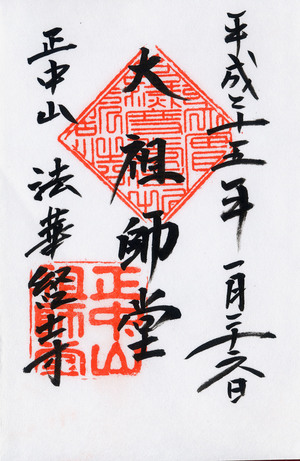 平成二十五年 一月二十六日
大祖師堂
正中山 法華経寺
正中山
祖師堂